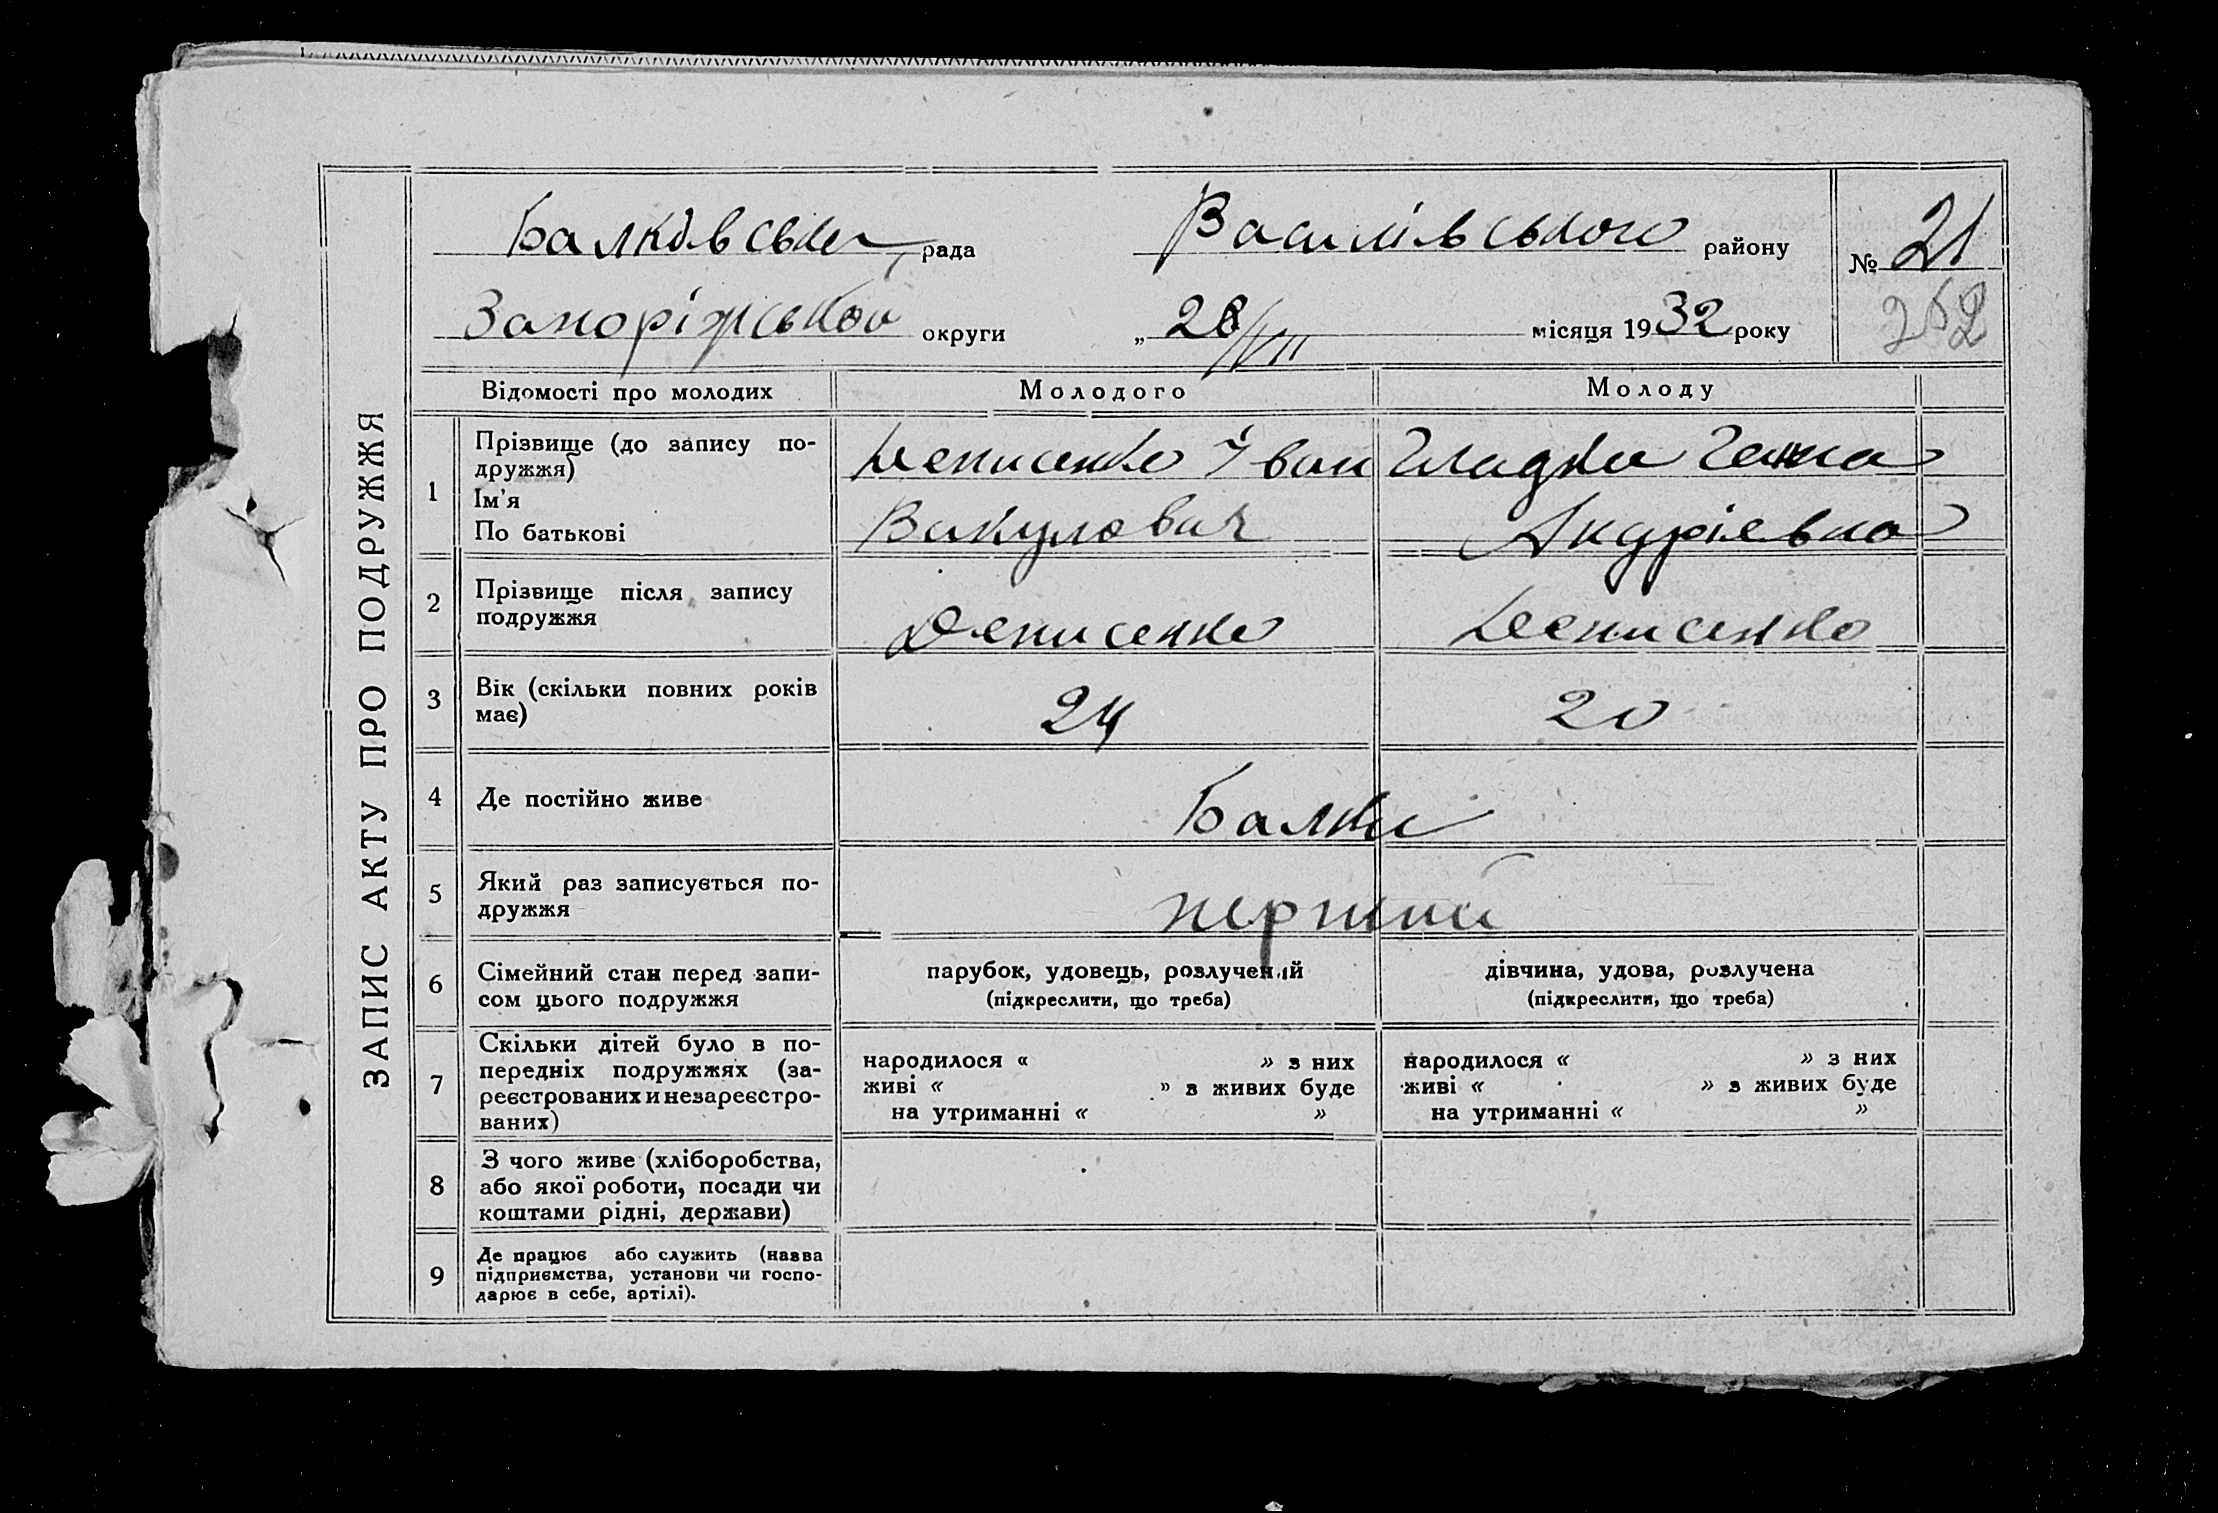 ЗАПИС АКТУ ПРО ПОДРУЖЖЯ
Балківська рада Василівського району № 21
Запоріжської округи „28/VII місяця 1932 року 252
Відомості про молодих Молодого Молоду
1 Прізвище (до запису по-
дружжя)
Ім'я
По батькові
Денисенко Іван
Вакулович
Гладка Ганна
Андріевна
2 Прізвище після запису
подружжя
Денисенко Денисенко
3 Вік (скільки повних років
має)
24 20
4 Де постійно живе Балки
5 Який раз записується по-
дружжя
перший
6 Сімейний стан перед запи-
сом цього подружжя
парубок, удовець, розлучений
(підкреслити, що треба)
дівчина, удова, розлучена
(підкреслити, що треба)
7 Скільки дітей було в по-
передніх подружжях (за-
реєстрованих и незареєстро-
ваних)
народилося « » з них
живі « » з живих буде
на утриманні « »
народилося « » з них
живі « » з живих буде
на утриманні « »
8 З чого живе (хліборобства,
або якої роботи, посади чи
коштами рідні, держави)
9 Де працює або служить (назва
підприємства, установи чи госпо-
дарює в себе, артілі).